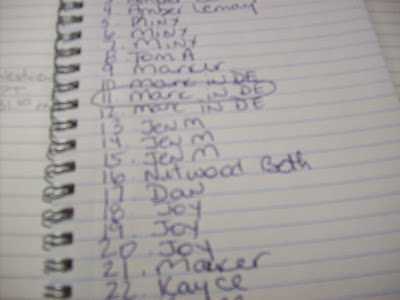 Amber Lemay
5 Minx
6 Minx
7 Minx
8 Tom A
9 Marker
10 mark IN DE
11 Mark IN DE
12 marc IN DE
13. Jen M
14. Jen M
15. Jen M
16 Nutwood Beth
17 Dan
18. Joy
19. Joy
20. Joy
21. Marker
22. Kayce